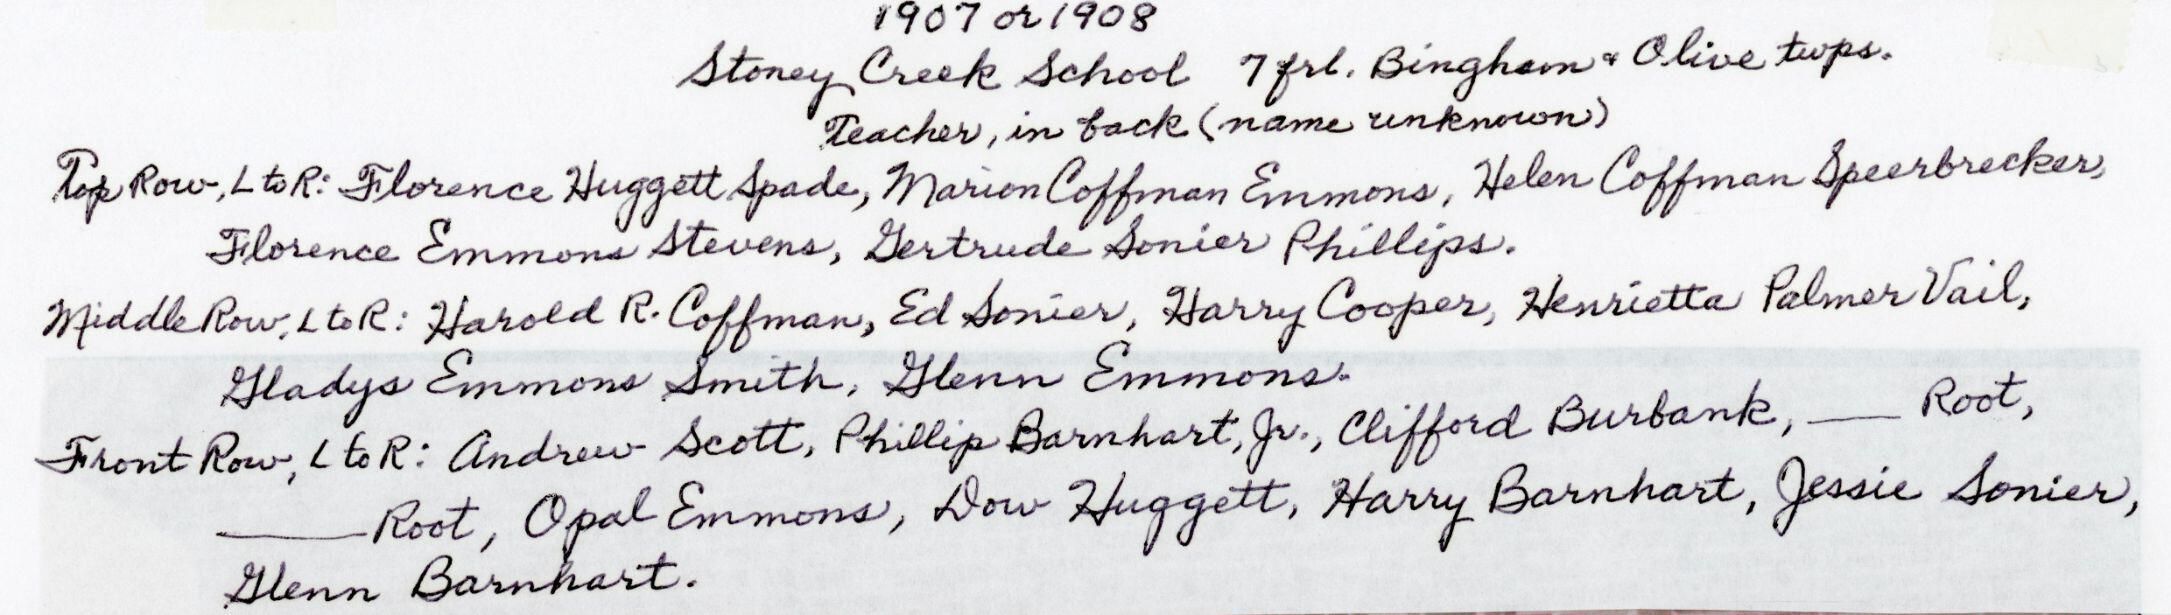 1907 or 1908
Stoney Creek School 7 frl. Bingham & Olive twps.
Teacher, in back (name unknown)
Top Row, L to R: Florence Huggett Spade, Marion Coffman Emmons, Helen Coffman Speerbrecker,
Florence Emmons Stevens, Gertrude Sonier Phillips.
Middle Row, L to R: Harold R. Coffman, Ed Sonier, Harry Cooper, Henrietta Palmer Vail,
Gladys Emmons Smith, Glenn Emmons.
Front Row, L to R: Andrew Scott, Phillip Barnhart, Jr., Clifford Burbank, ___ Root,
_____ Root, Opal Emmons, Dow Huggett, Harry Barnhart, Jessie Sonier,
Glenn Barnhart.